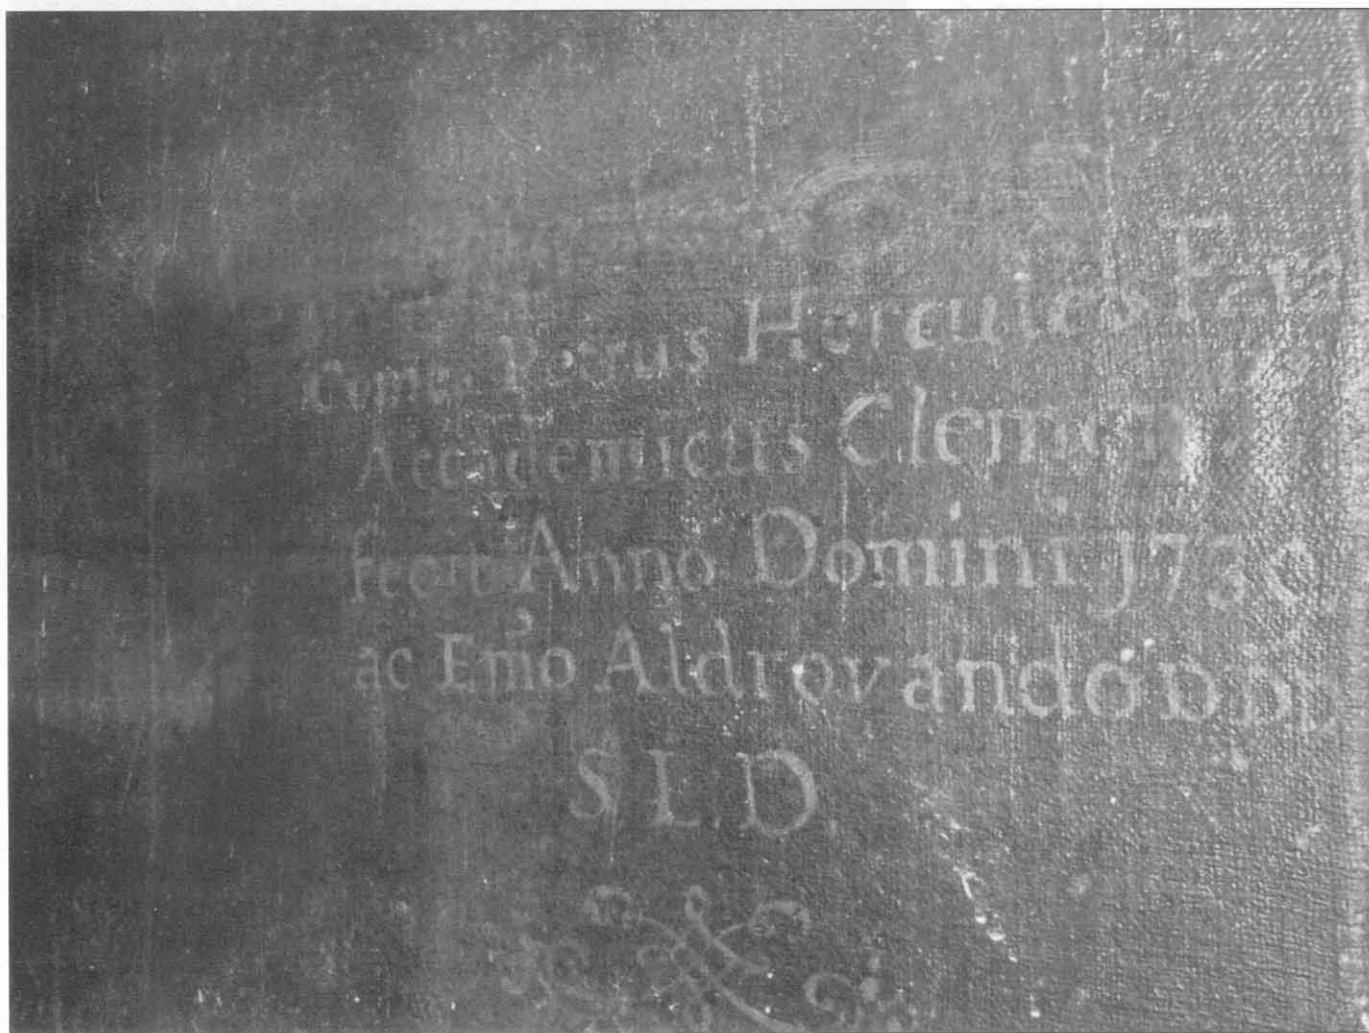 Comes Petrus Hercules Fava
Accademicus Clemen
fecit Anno Domini 1730
ac Emo Aldrovando D.D.D.
S.L.D.